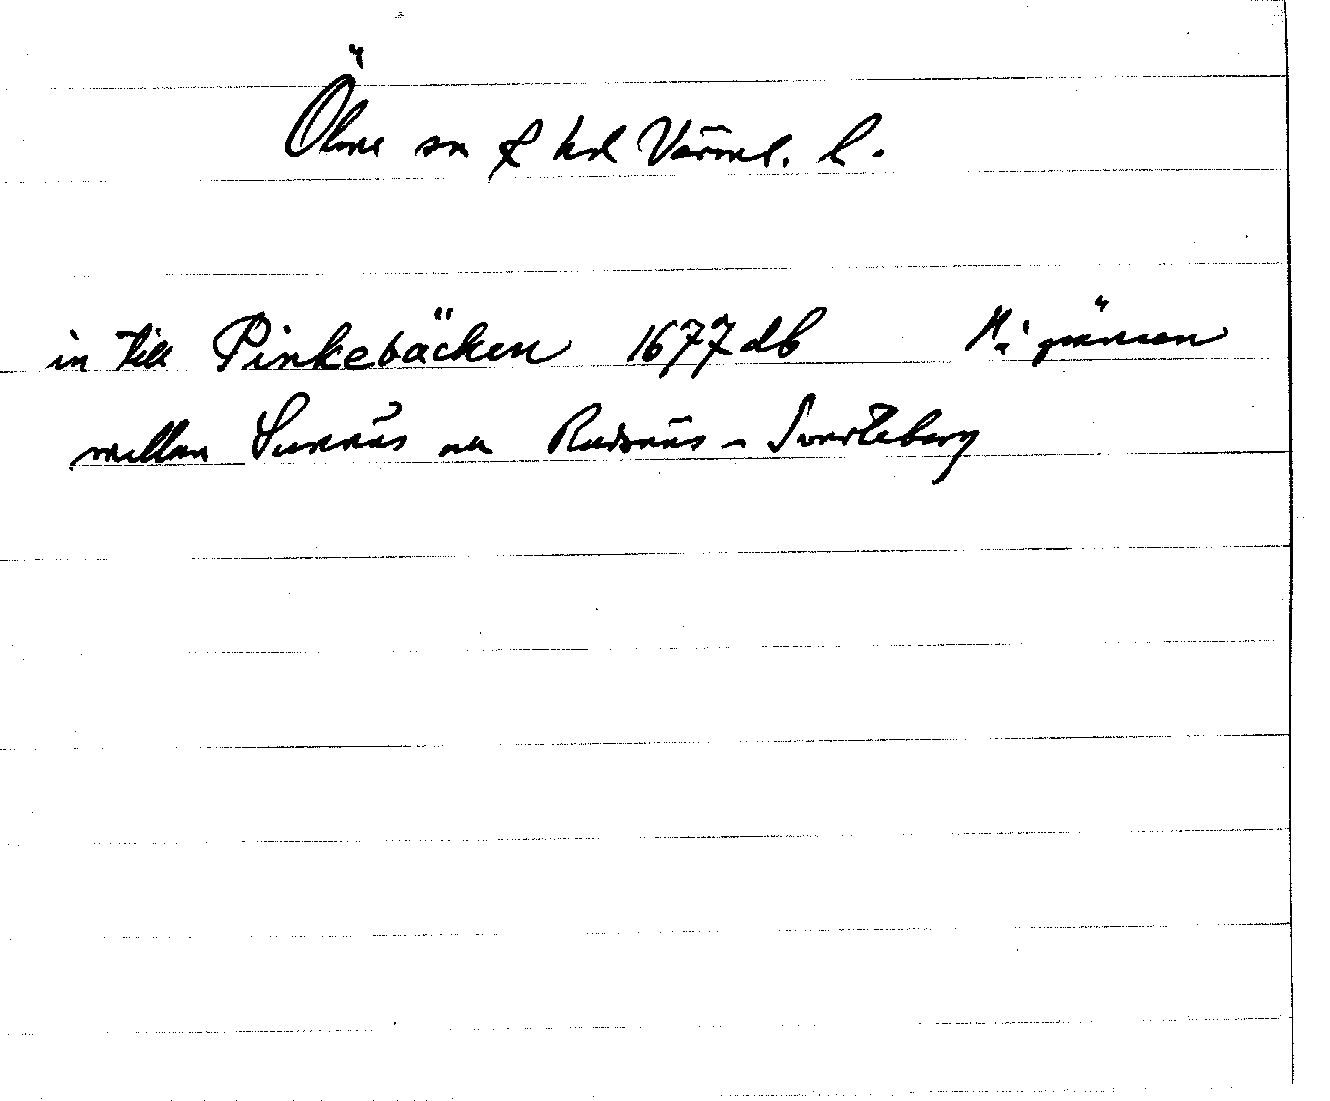 Ölme sn f hd Värml. l.
in till Pinkebäcken 1677 db i gränsen
mellan Sunnäs och Rudsnäs - Svarteberg